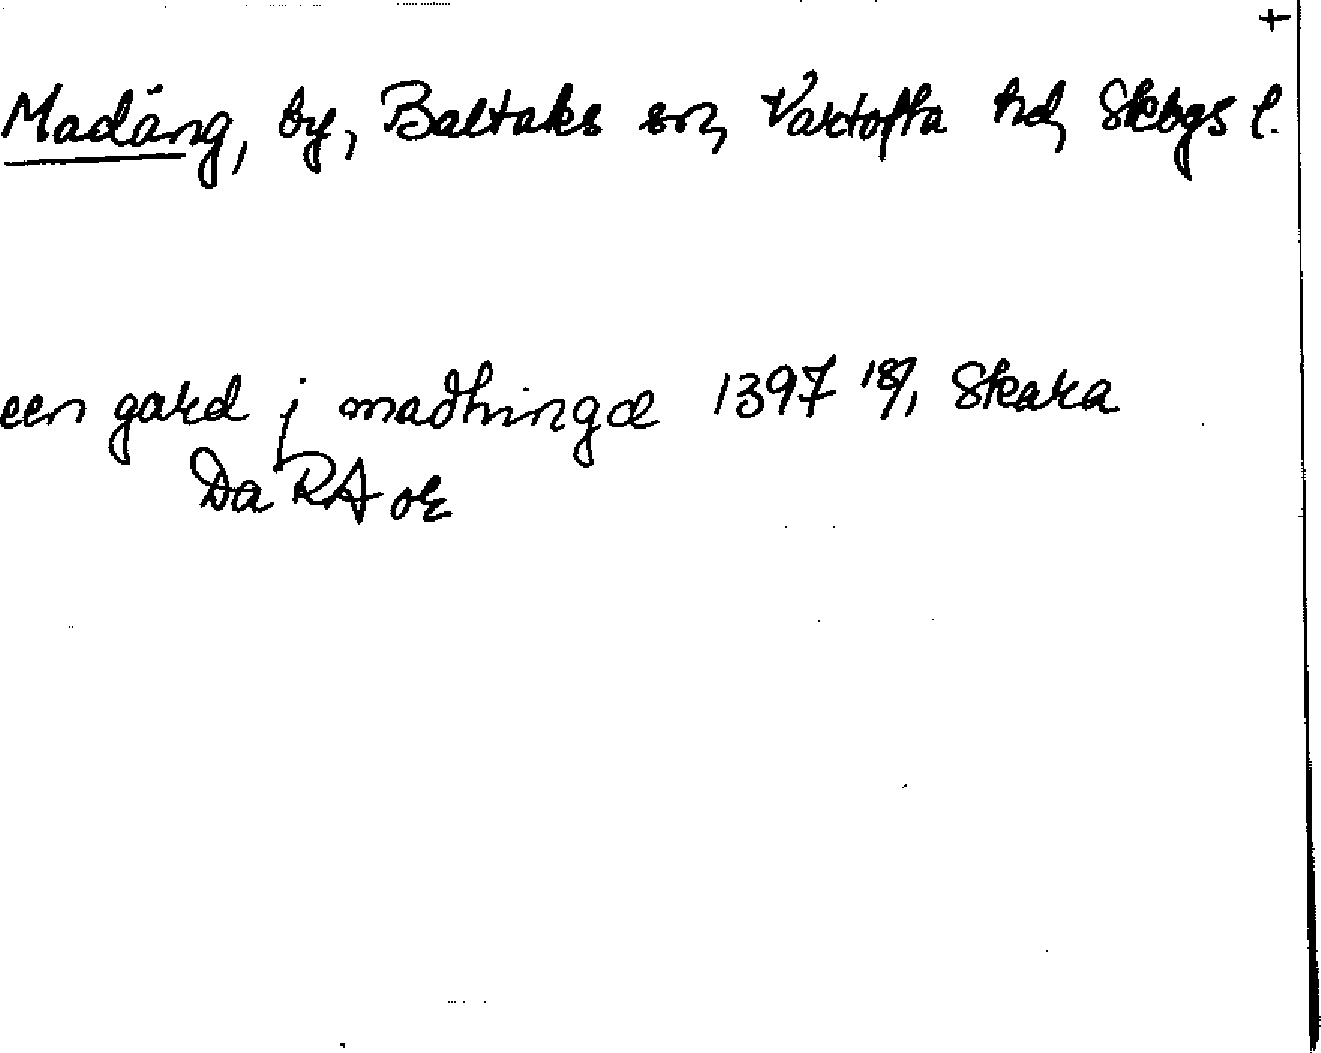 +
Madäng, by, Baltaks sn, Vartofta hd, Skbgs l.
een gard j madhingæ 1397 18/, Skara
Da RA or